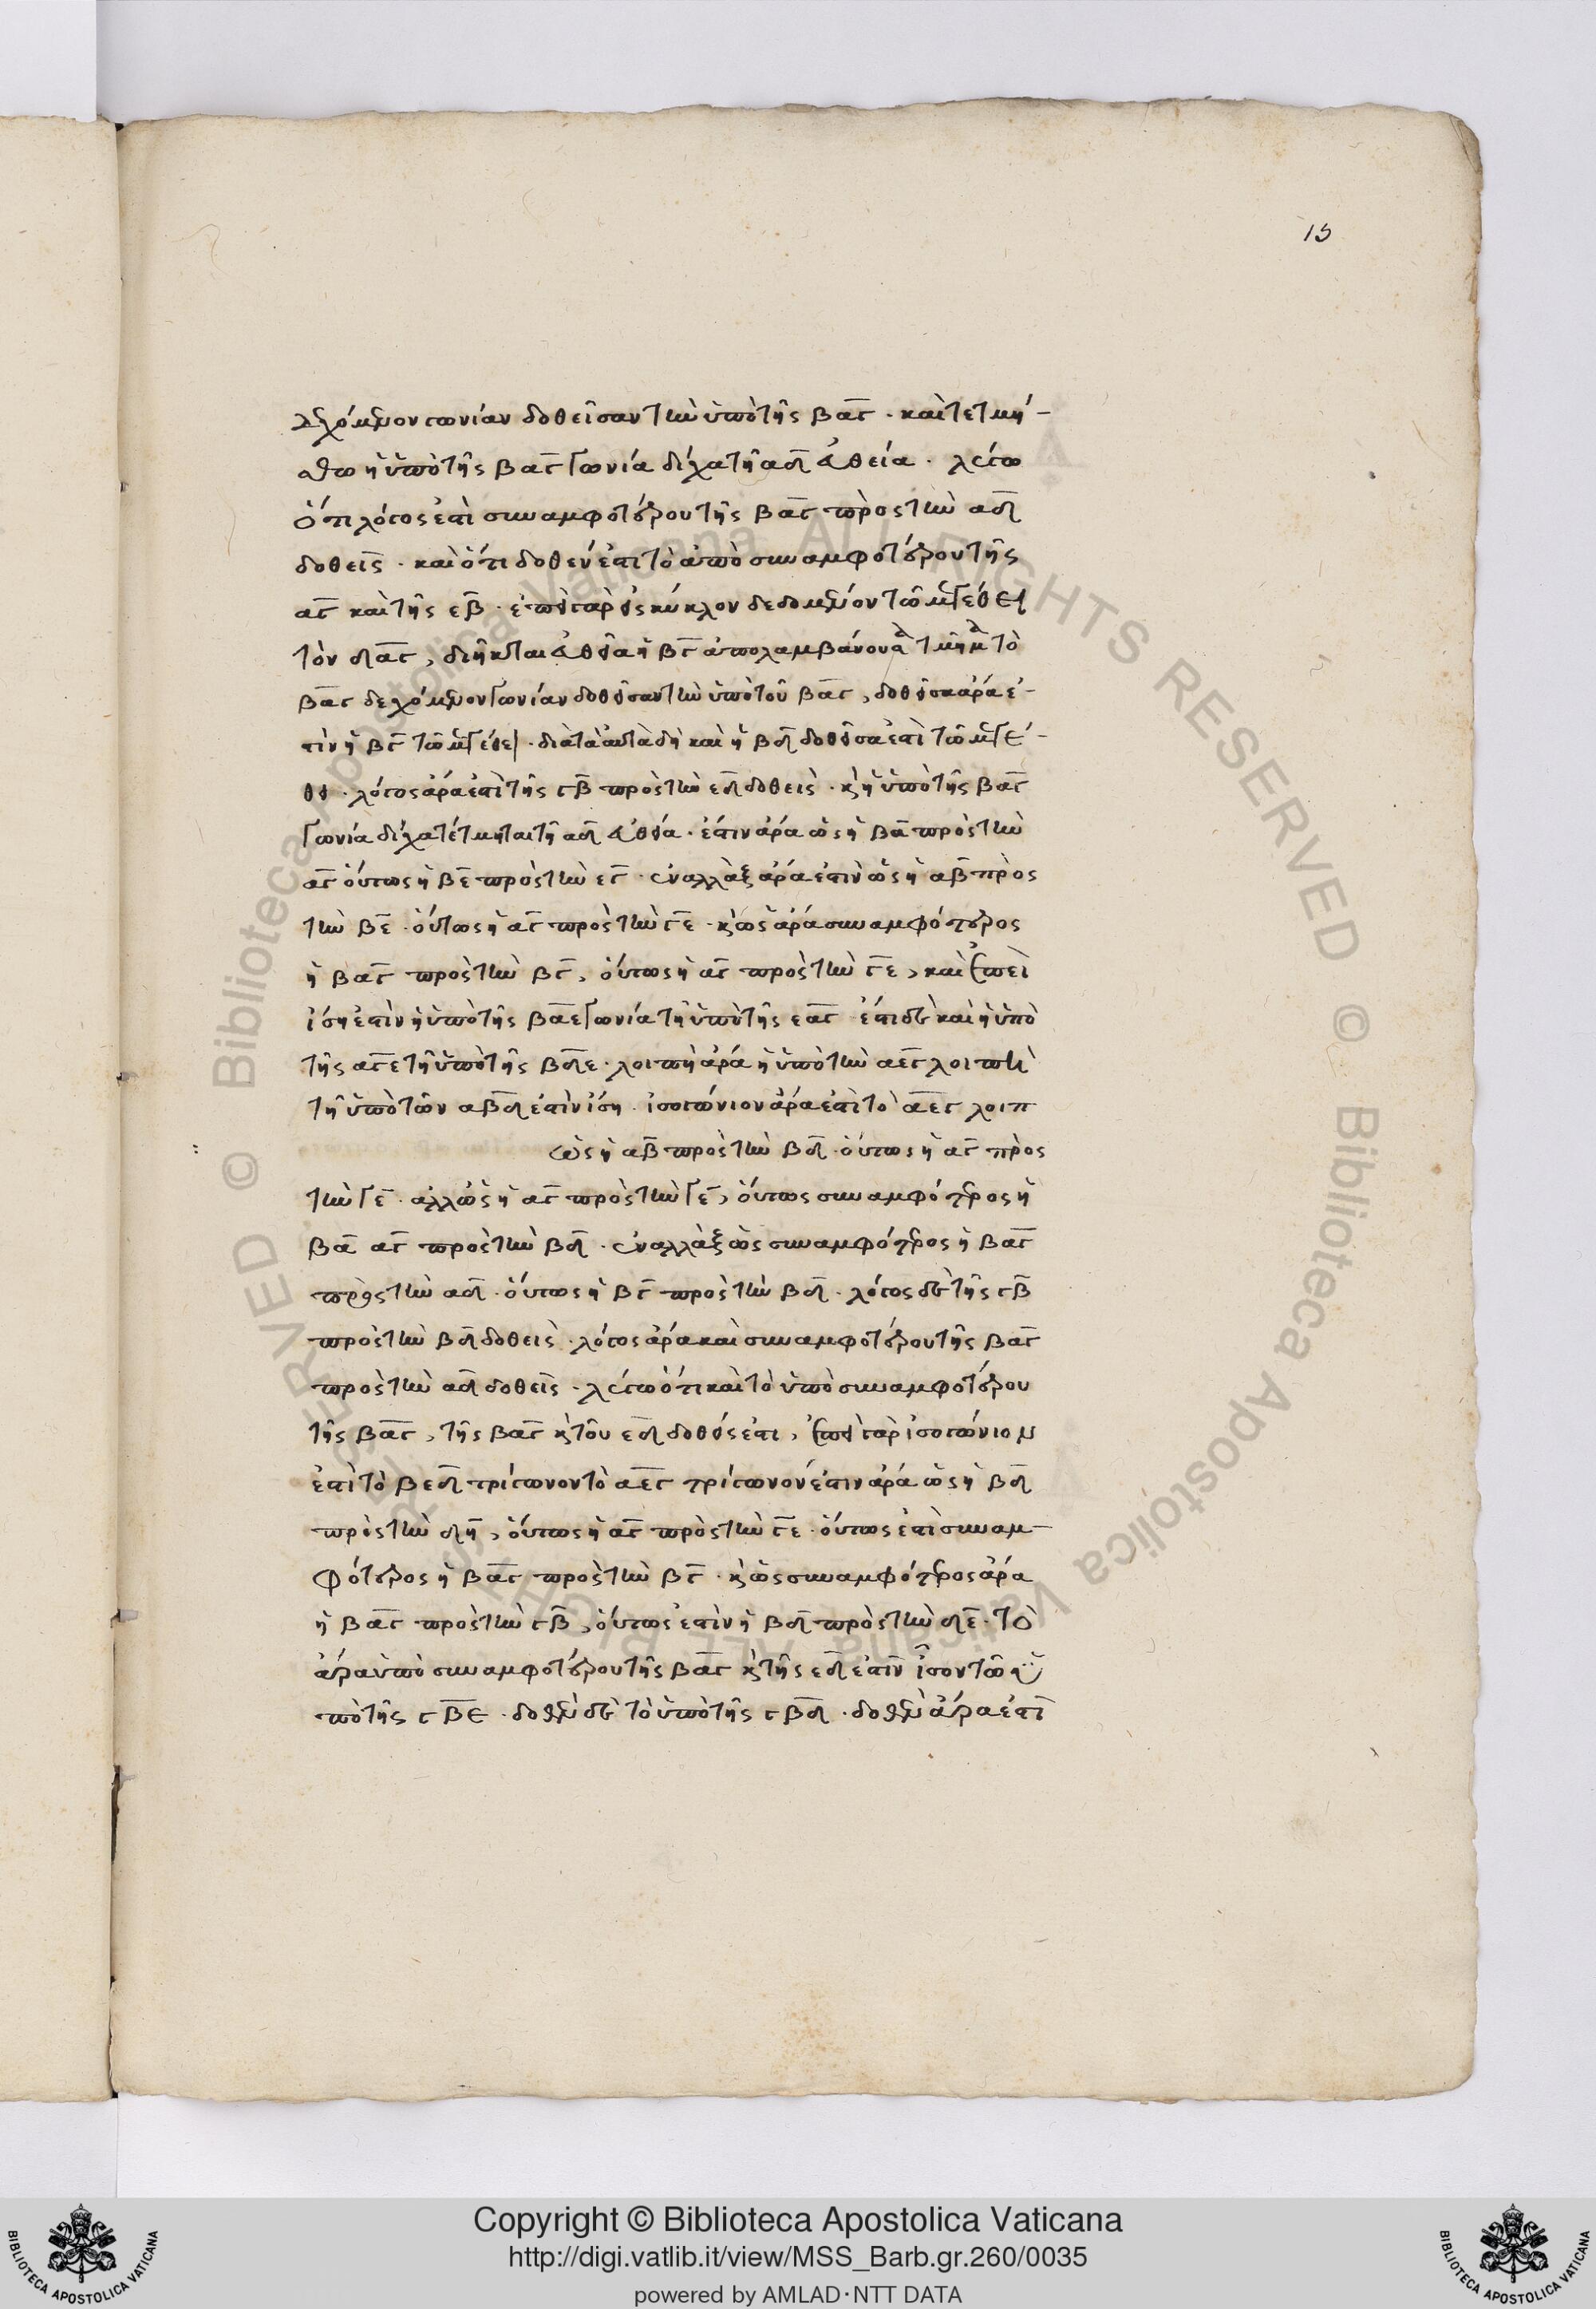 15
δεχόμενον γωνίαν δοθεῖσαν τὴν ὑπὸ τῆς βαγ · καὶ τετμή-
σθω ἡ ὑπὸ τῆς βαγ γωνία δίχα τῇ αδ εὐθεία · λέγω
ὅτι λόγος ἐστὶ συναμφοτέρου τῆς βαγ πρὸς τὴν αδ
δοθείς · καὶ ὅτι δοθέν ἐστι τὸ ἀπὸ συναμφοτέρου τῆς
αγ καὶ τῆς εβ · ἐπεὶ γὰρ εἰς κύκλον δεδομένον τῶ μεγέθει
τὸν δαγ, διῆκται εὐθεῖα ἡ βγ ἀπολαμβάνουσα τμῆμα τὸ
βαγ δεχόμενον γωνίαν δοθεῖσαν τὴν ὑπὸ τοῦ βαγ, δοθεῖσα ἄρα ἐ-
στὶν ἡ βγ τῶ μεγέθει · διὰ τὰ αὐτὰ δὴ καὶ ἡ βδ δοθεῖσα ἐστὶ τῶ μεγέ-
θει · λόγος ἄρα ἐστὶ τῆς γβ πρὸς τὴν εδ δοθεὶς · κὴ ἡ ὑπὸ τῆς βαγ
γωνία δίχα τέτμηται τῇ αδ εὐθεία · ἔστιν ἄρα ὡς ἡ βα πρὸς τὴν
αγ οὕτως ἡ βε πρὸς τὴν εγ · ἐναλλὰξ ἄρα ἐστὶν ὡς ἡ αβ πρὸς
τὴν βε · οὕτως ἡ αγ πρὸς τὴν γε · κὴ ὡς ἄρα συναμφότερος
ἡ βαγ πρὸς τὴν βγ, οὕτως ἡ αγ πρὸς τὴν γε, καὶ ἐπεὶ
ἴση ἐστὶν ἡ ὑπὸ τῆς βαε γωνία τῇ ὑπὸ τῆς εαγ ἔστι δὲ καὶ ἡ ὑπὸ
τῆς αγε τῇ ὑπὸ τῆς βδε · λοιπὴ ἄρα ἡ ὑπὸ τὴν αεγ λοιπὴ
τῇ ὑπὸ τῶν αβδ ἐστὶν ἴση · ἰσογώνιον ἄρα ἐστὶ τὸ αεγ λοιπ
ὡς ἡ αβ πρὸς τὴν βδ · οὕτως ἡ αγ πρὸς
τὴν γε · ἀλλ' ὡς ἡ αγ πρὸς τὴν γε, οὕτως συναμφότερος ἡ
βα αγ πρὸς τὴν βδ · ἐναλλὰξ ὡς συναμφότερος ἡ βαγ
πρὸς τὴν αδ · οὕτως ἡ βγ πρὸς τὴν βδ · λόγος δὲ τῆς γβ
πρὸς τὴν βδ δοθεὶς · λόγος ἄρα καὶ συναμφοτέρου τῆς βαγ
πρὸς τὴν αδ δοθεὶς · λέγω ὅτι καὶ τὸ ὑπὸ συναμφοτέρου
τῆς βαγ, τῆς βαγ κὴ τοῦ εδ δοθείς ἐστι, ἐπεὶ γὰρ ἰσογώνιον
ἐστὶ τὸ βεδ τρίγωνον τὸ αεγ τρίγωνον ἔστιν ἄρα ὡς ἡ βδ
πρὸς τὴν δη, οὕτως ἡ αγ πρὸς τὴν γε · οὕτως ἐστὶ συναμ-
φότερος ἡ βαγ πρὸς τὴν βγ · κὴ ὡς συναμφότερος ἄρα
ἡ βαγ πρὸς τὴν γβ, οὕτως ἐστὶν ἡ βδ πρὸς τὴν δε · τὸ
ἄρα ὑπὸ συναμφοτέρου τῆς βαγ κὴ τῆς εδ ἐστὶν ἴσον τῶ ὑ
πὸ τῆς γβε · δοθὲν δὲ τὸ ὑπὸ τῆς γβδ · δοθὲν ἄρα ἐστὶ
© Biblioteca Apostolica Vaticana ALL RIGHTS RESERVED © Biblioteca Apostolica Vaticana ALL RIGHTS RESERVED
Copyright © Biblioteca Apostolica Vaticana
http://digi.vatlib.it/view/MSS_Barb.gr.260/0035
powered by AMLAD·NTT DATA
BIBLIOTECA APOSTOLICA VATICANA
BIBLIOTECA APOSTOLICA VATICANA